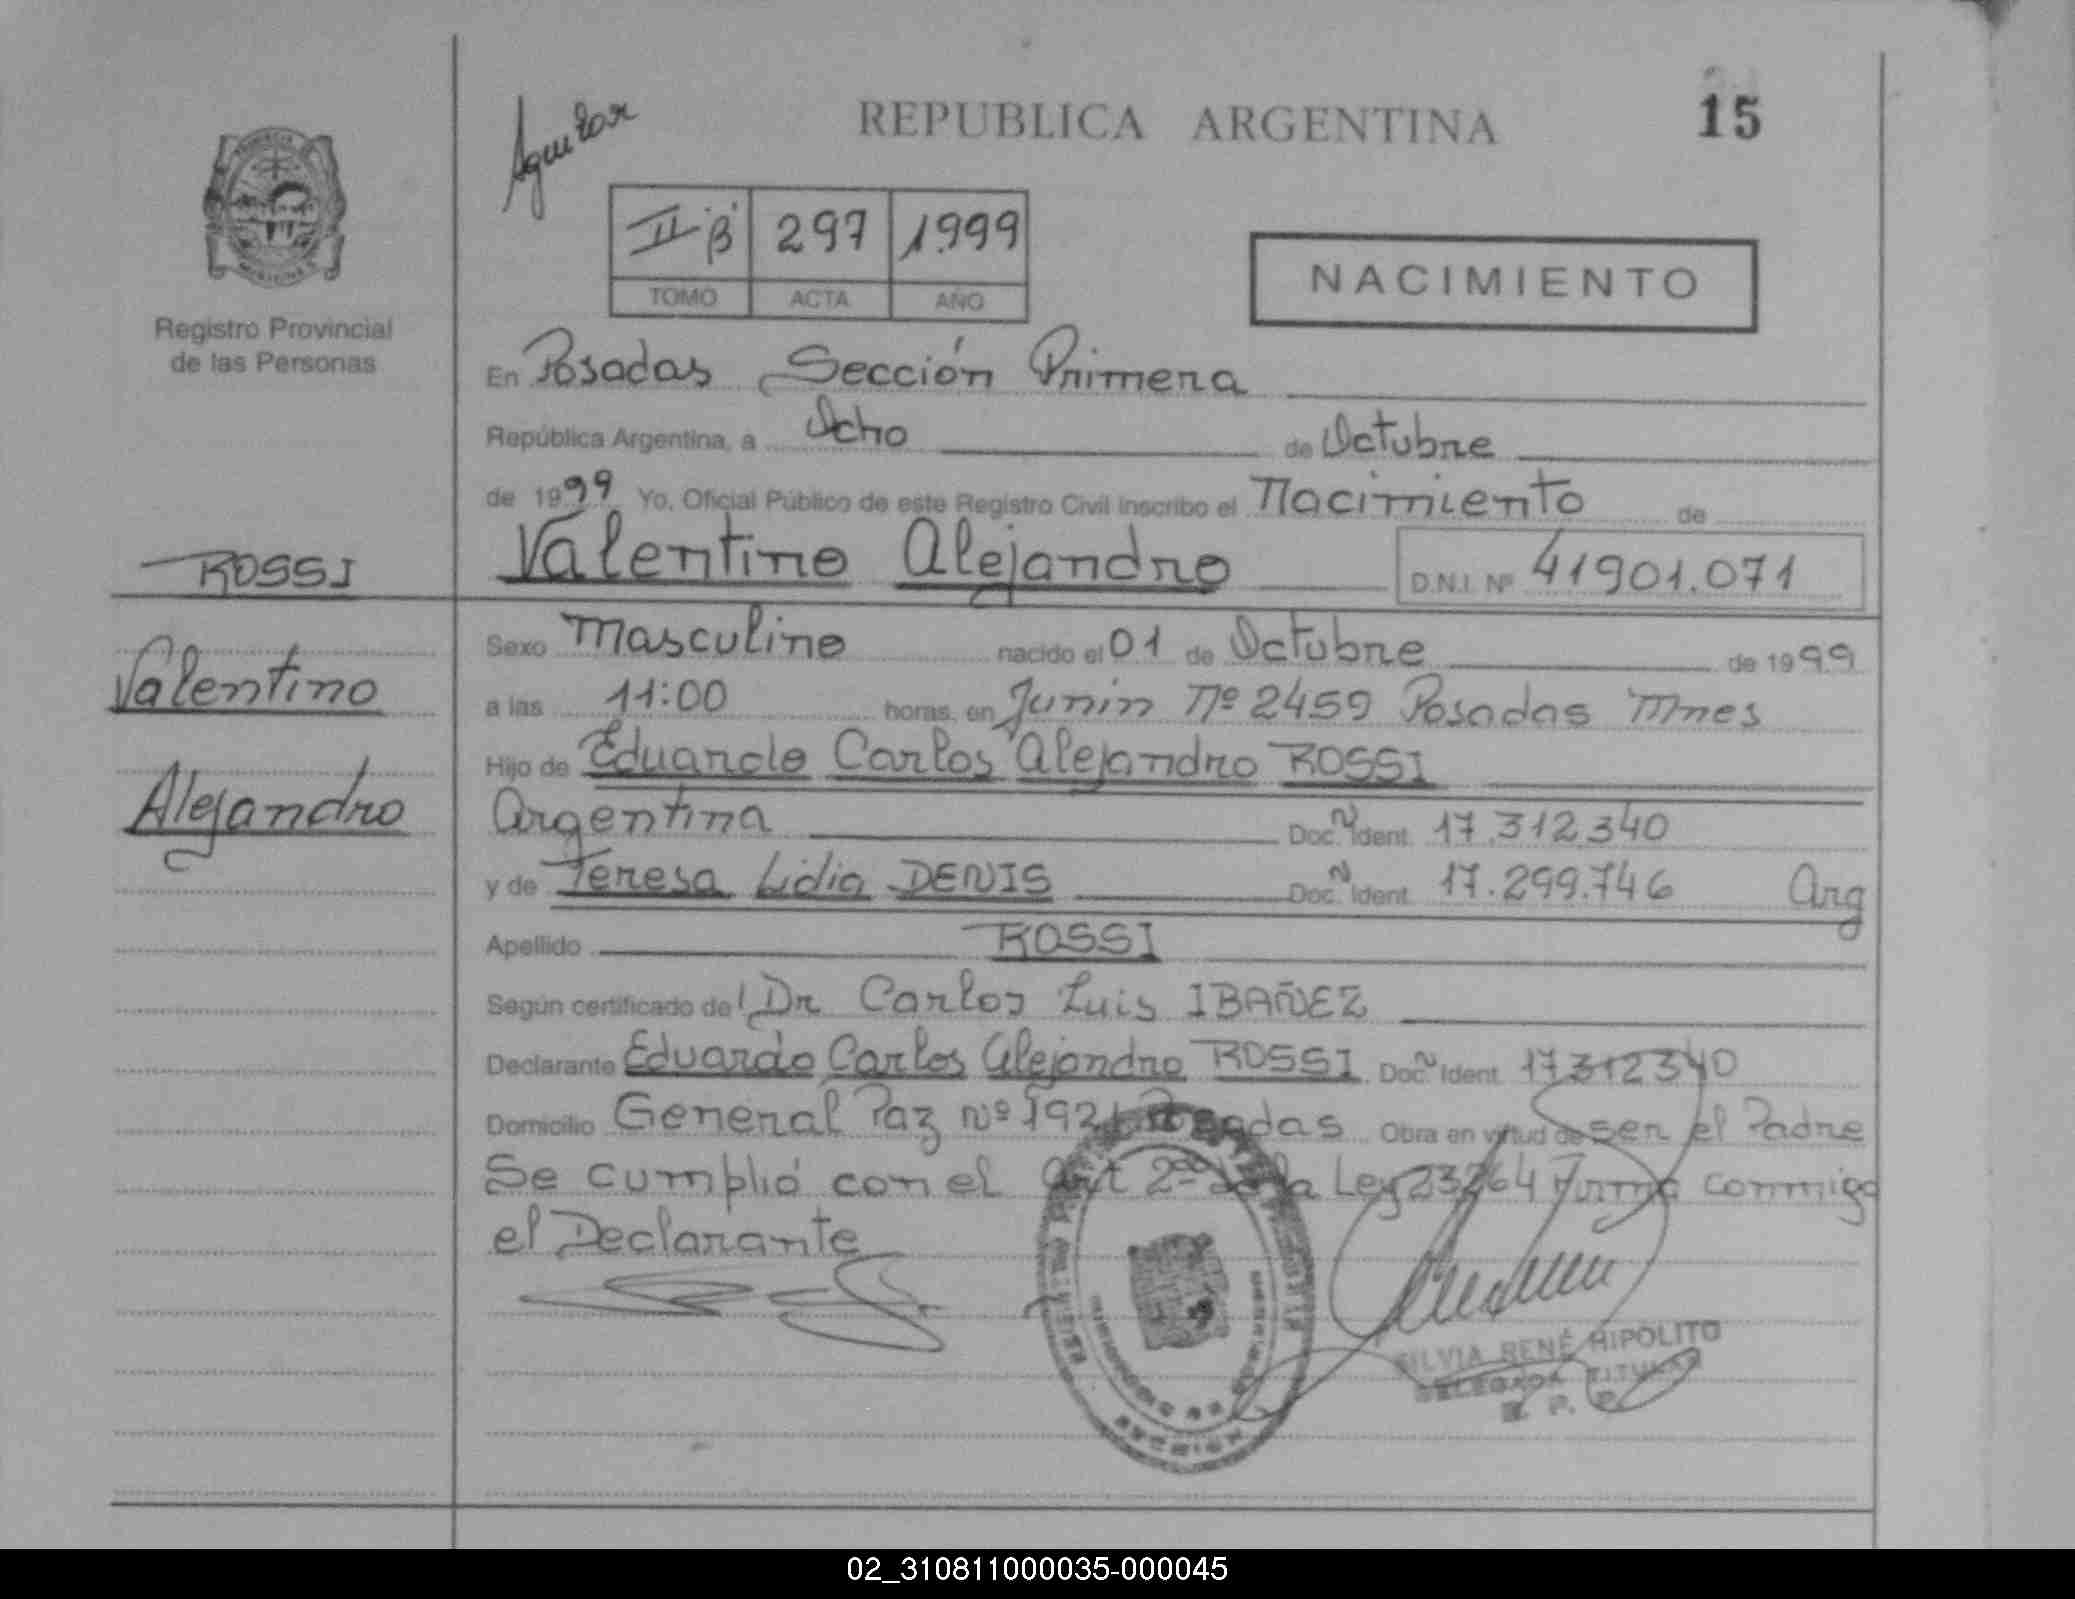 Aguilar
REPUBLICA ARGENTINA
15
II-B 297 1999
TOMO ACTA AÑO
NACIMIENTO
Registro Provincial
de las Personas
En Posadas Sección Primera
República Argentina, a Ocho de Octubre
de 1999 Yo, Oficial Público de este Registro Civil Inscribo el Nacimiento de
ROSSI
Valentino Alejandro D.N.I. Nº 41901.071
Valentino
Alejandro
Sexo Masculino nacido el 01 de Octubre de 1999
a las 11:00 horas, en Junin Nº 2459 Posadas Mnes
Hijo de Eduardo Carlos Alejandro ROSSI
Argentina Doc. Ident. 17.312.340
y de Teresa Lidia DENIS Doc. Ident. 17.299.746 Arg
Apellido ROSSI
Según certificado de Dr Carlos Luis IBAÑEZ
Declarante Eduardo Carlos Alejandro ROSSI Doc. Ident. 17312340
Domicilio General Paz Nº Posadas Obra en virtud de ser el Padre
Se cumplió con el Art 2º de la Ley 23264 Firma conmigo
el Declarante
SILVIA RENÉ HIPOLITO
DELEGADA TITULAR
R. P. P.
02_310811000035-000045